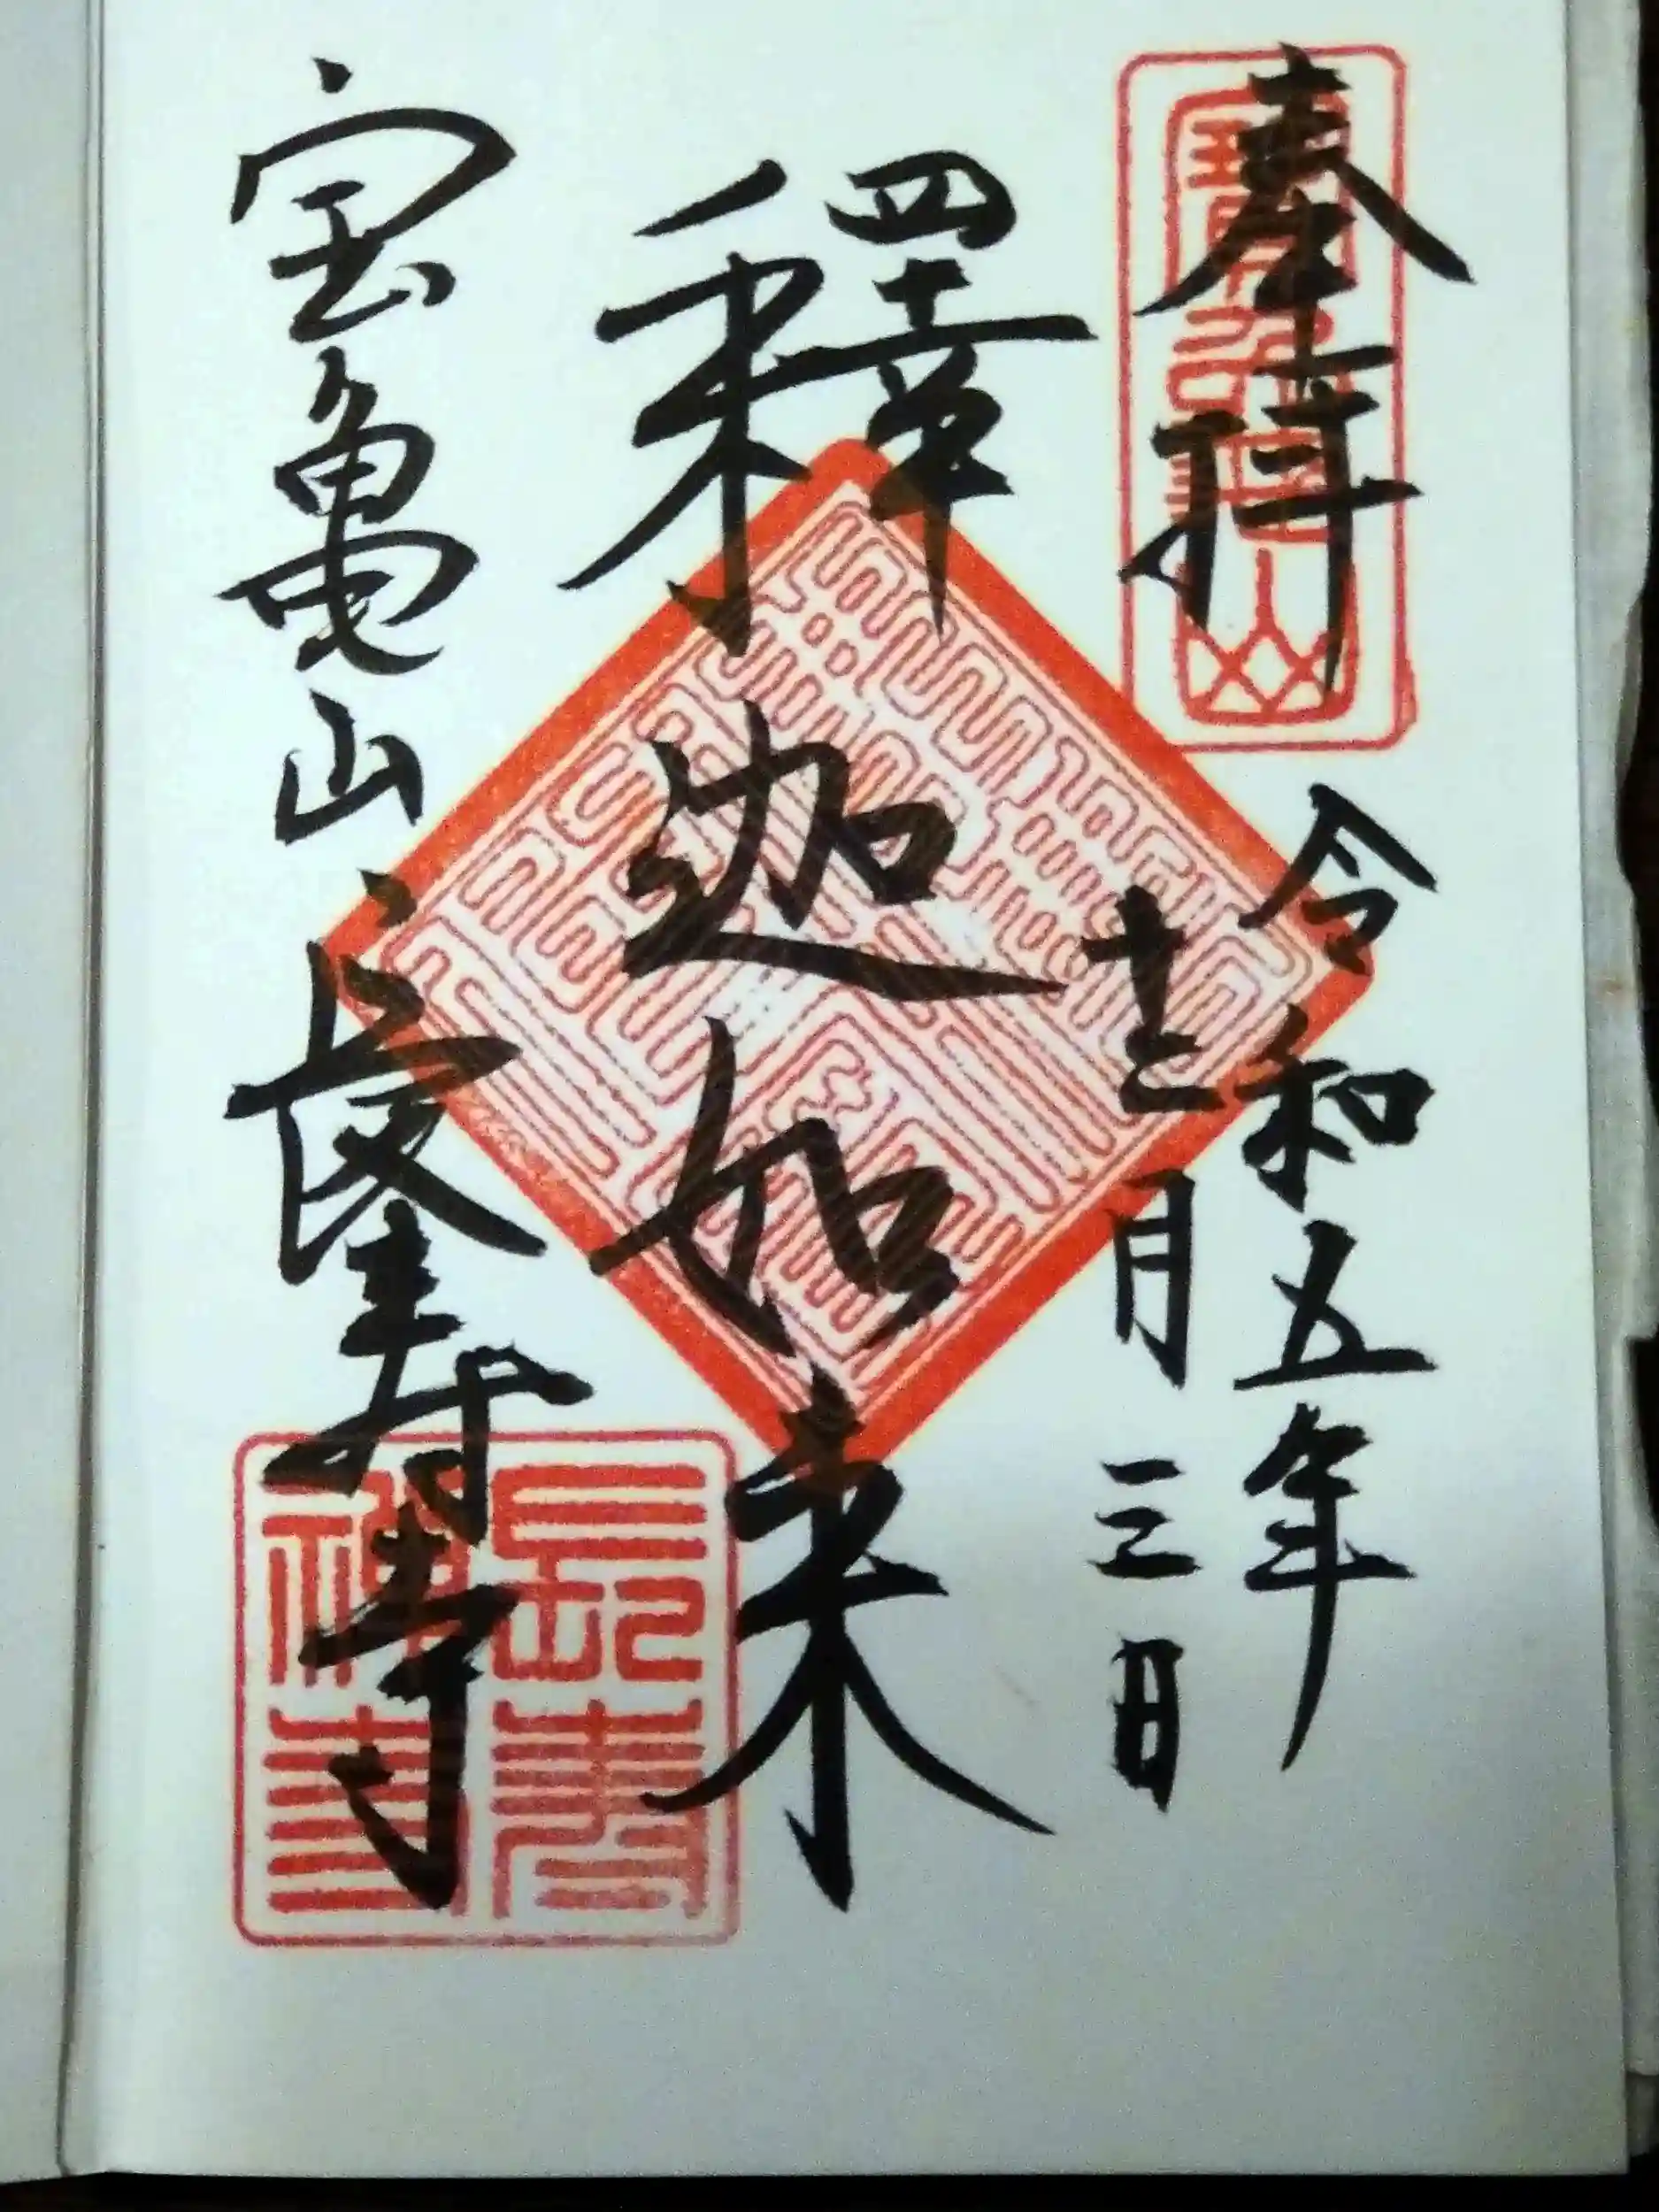 奉拝
令和五年
十二月三日
釋迦如来
宝亀山 長寿寺
長壽禅寺